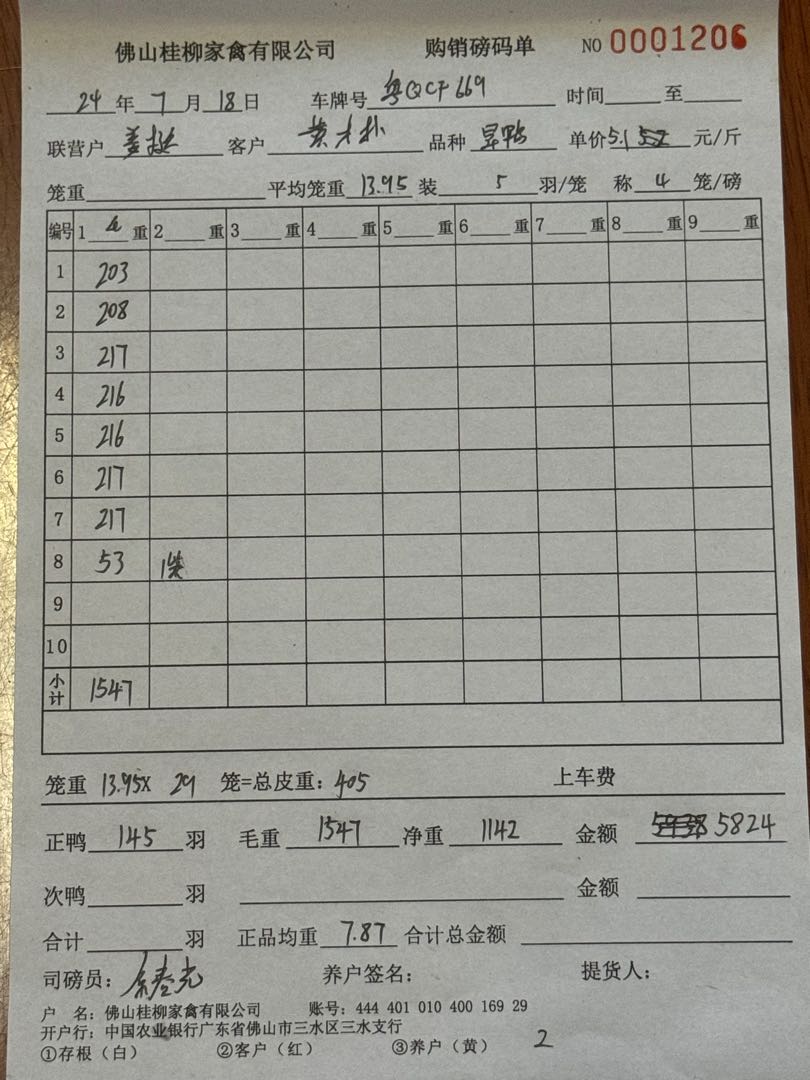 佛山桂柳家禽有限公司 购销磅码单 NO 0001206
24年7月18日 车牌号 粤QCF669 时间 至
联营户 客户 黄才朴 品种 旱鸭 单价5.1 元/斤
笼重 平均笼重 13.95 装 5 羽/笼 称 4 笼/磅
编号 1 重 2 重 3 重 4 重 5 重 6 重 7 重 8 重 9 重
1 203
2 208
3 217
4 216
5 216
6 217
7 217
8 53
9
10
小计 1547
笼重 13.95X 29 笼=总皮重: 405 上车费
正鸭 145 羽 毛重 1547 净重 1142 金额 5824
次鸭 羽 金额
合计 羽 正品均重 7.87 合计总金额
司磅员: 养户签名: 提货人:
户 名: 佛山桂柳家禽有限公司 账号: 444 401 010 400 169 29
开户行: 中国农业银行广东省佛山市三水区三水支行
①存根（白） ②客户（红） ③养户（黄） 2